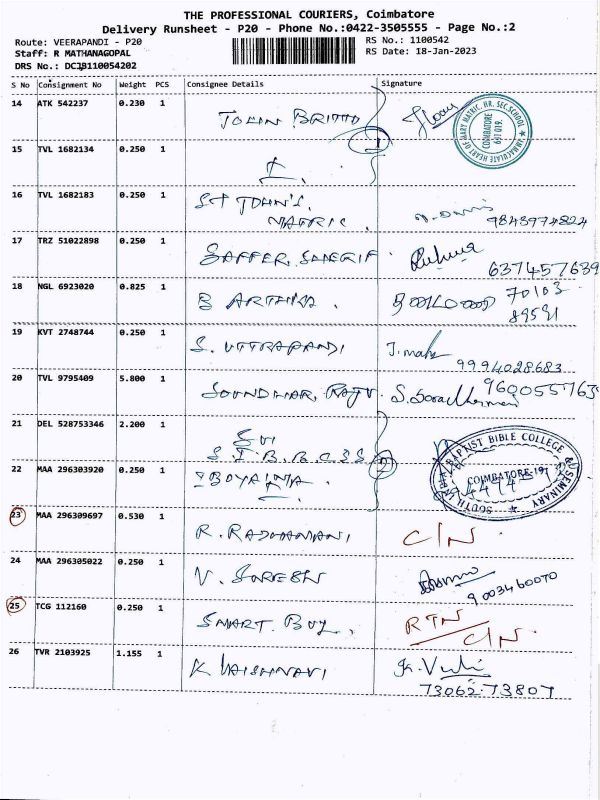 THE PROFESSIONAL COURIERS, Coimbatore
Delivery Runsheet - P20 - Phone No.:0422-3505555 - Page No.:2
Route: VEERAPANDI - P20
Staff: R MATHANAGOPAL
DRS No.: DCJB110054202
RS No.: 1100542
RS Date: 18-Jan-2023
S No Consignment No Weight PCS Consignee Details Signature
14 ATK 542237 0.230 1 JOHN BRITTO
IMMACULATE HEART OF MARY MATRIC. HR. SEC. SCHOOL
COIMBATORE
641 019.
15 TVL 1682134 0.250 1
16 TVL 1682183 0.250 1 ST JOHN'S.
MATRIC. 9843974824
17 TRZ 51022898 0.250 1 SAFFER. SHERIF 637457639
18 NGL 6923020 0.825 1 B ARTHIKA. 70103
89591
19 KVT 2748744 0.250 1 S. UTTRAPANDI J. mahe
9994028683
20 TVL 9795409 5.800 1 SOUNDHAR RAJU. 960055763
21 DEL 528753346 2.200 1
S.I.B.B.C.S.S
22 MAA 296303920 0.250 1
SOUTH INDIA BAPTIST BIBLE COLLEGE & SEMINARY
COIMBATORE-19
23 MAA 296309697 0.530 1 R. RADHAMANI C/N
24 MAA 296305022 0.250 1 V. SURESH
9003460070
25 TCG 112160 0.250 1 SMART. BUY. RTN
C/N.
26 TVR 2103925 1.155 1 K VAISHNAVI
73062.73807